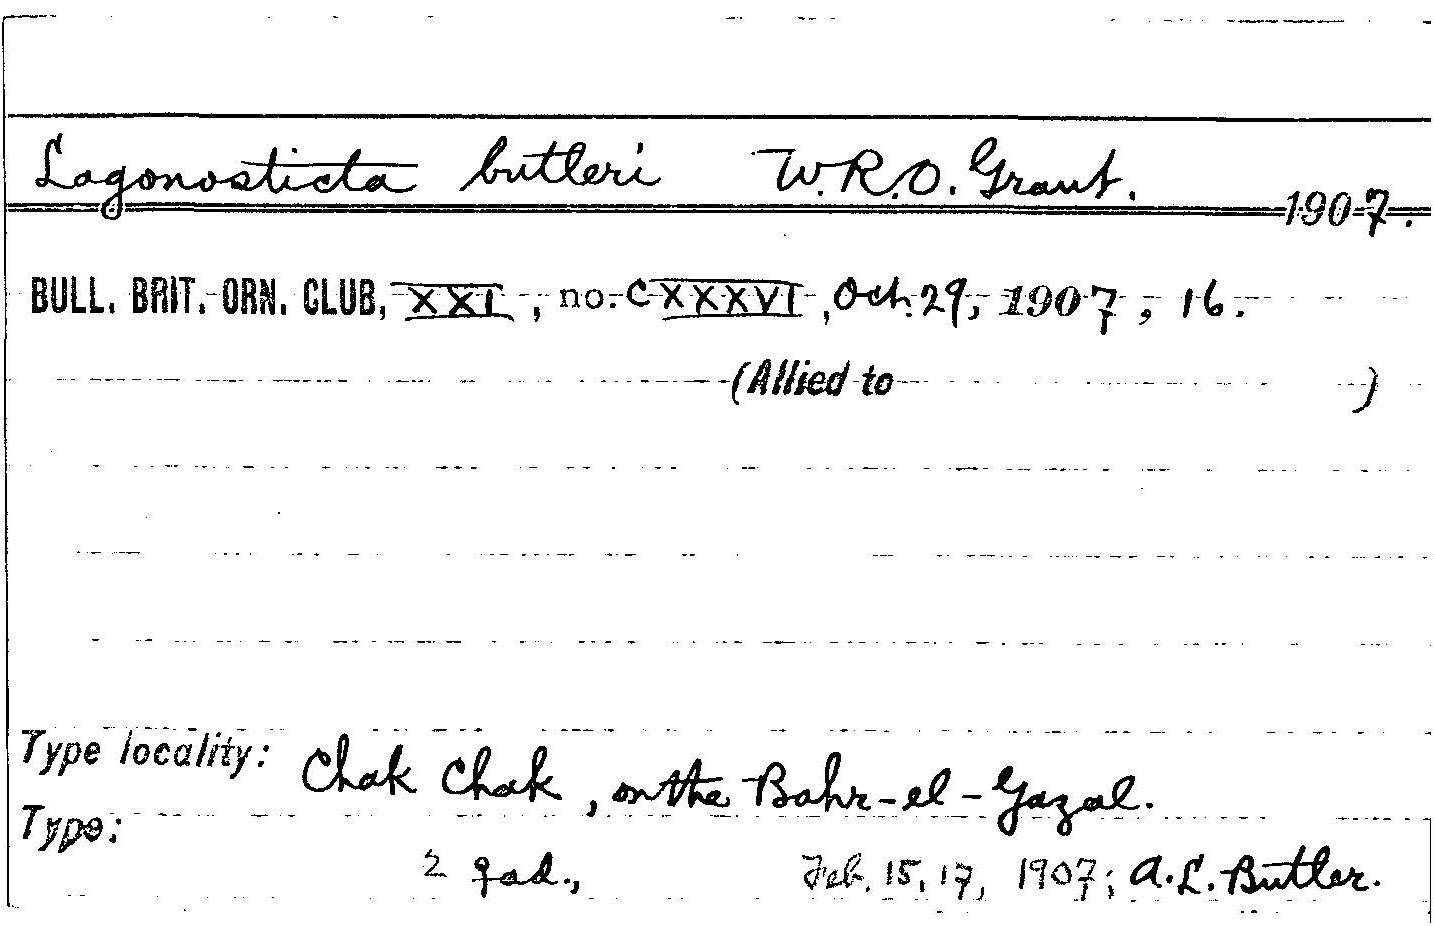 Lagonosticta butleri W.R.O. Grant. 1907.
BULL. BRIT. ORN. CLUB, XXI, no. CXXXVI, Oct. 29, 1907, 16.
(Allied to )
Type locality: Chak Chak, on the Bahr-el-Gazal.
Type:
2 ♀ ad., Feb. 15, 17, 1907; A.L. Butler.